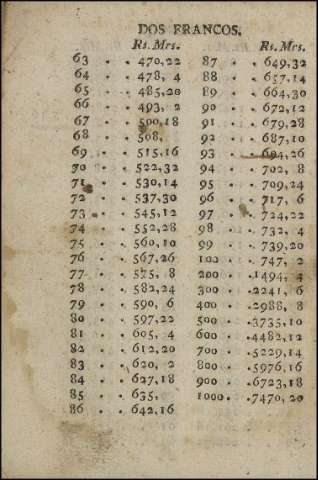 DOS FRANCOS.
Rs. Mrs. Rs. Mrs.
63 . . 470,22 87 . . 649,32
64 . . 478, 4 88 . . 657,14
65 . . 485,20 89 . . 664,30
66 . . 493, 2 90 . . 672,12
67 . . 500,18 91 . . 679,28
68 . . 508, 92 . . 687,10
69 . . 515,16 93 . . 694,26
70 . . 522,32 94 . . 702, 8
71 . . 530,14 95 . . 709,24
72 . . 537,30 96 . . 717, 6
73 . . 545,12 97 . . 724,22
74 . . 552,28 98 . . 732, 4
75 . . 560,10 99 . . 739,20
76 . . 567,26 100 . . 747, 2
77 . . 575, 8 200 . .1494, 4
78 . . 582,24 300 . .2241, 6
79 . . 590, 6 400 . .2988, 8
80 . . 597,22 500 . .3735,10
81 . . 605, 4 600 . .4482,12
82 . . 612,20 700 . .5229,14
83 . . 620, 2 800 . .5976,16
84 . . 627,18 900 . .6723,18
85 . . 635, 1000. .7470,20
86 . . 642,16